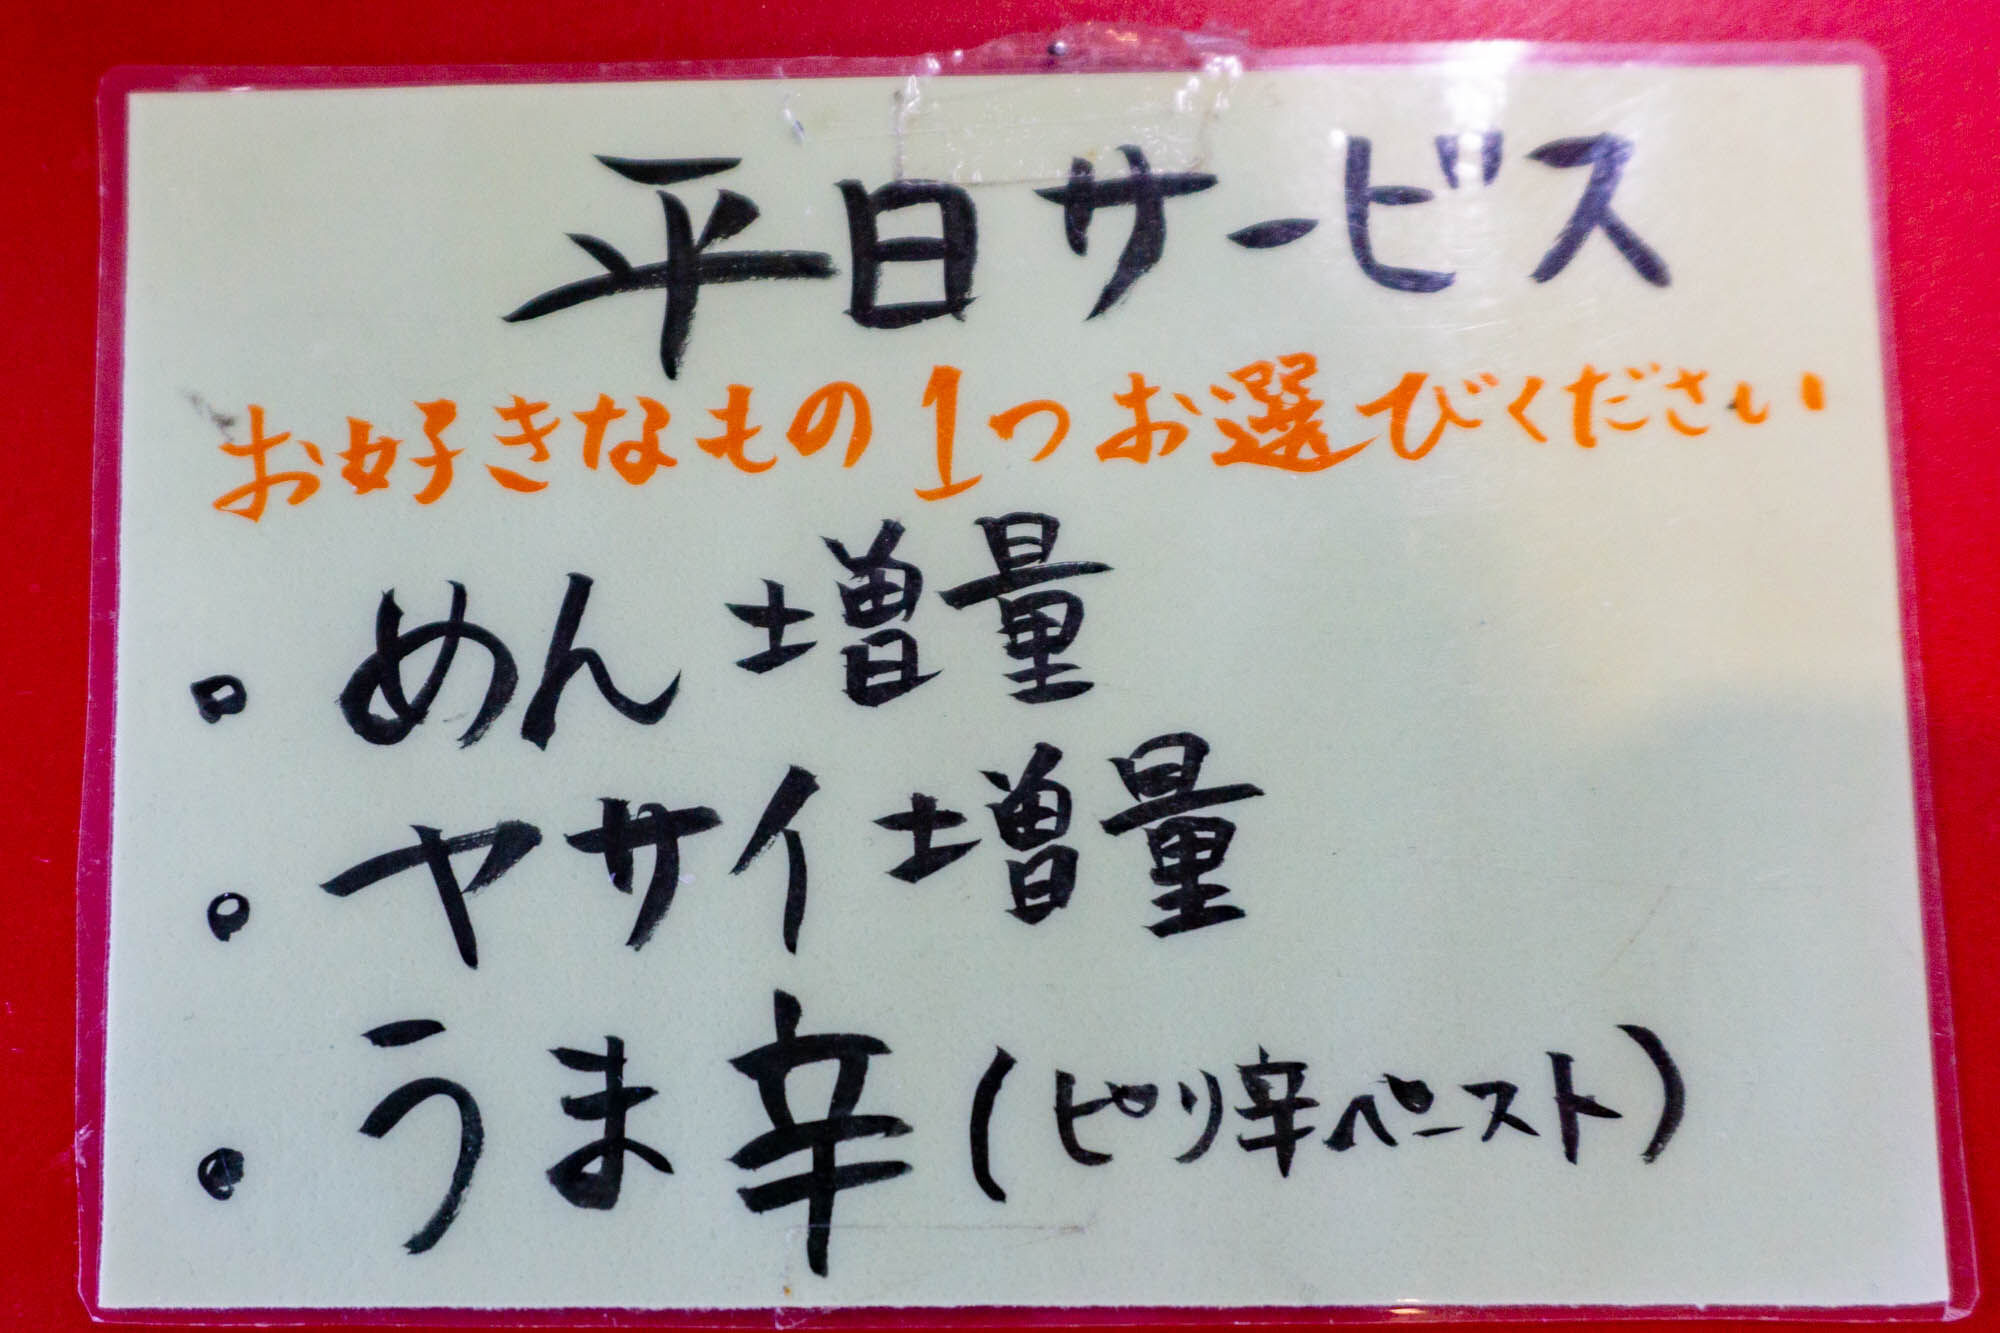 平日サービス
お好きなもの1つお選びください
・めん増量
・ヤサイ増量
・うま辛(ピリ辛ペースト)